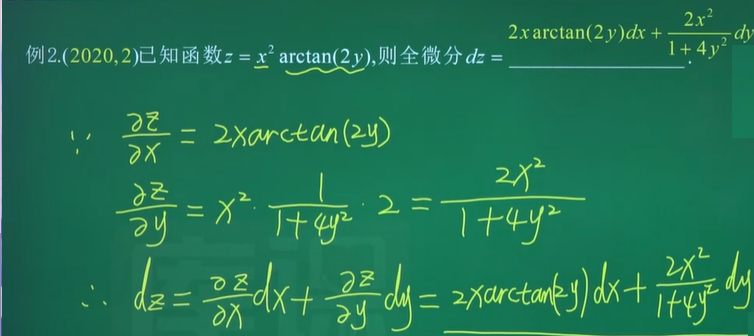 例2.(2020,2)已知函数z = x² arctan(2y),则全微分dz = 2x arctan(2y)dx + \frac{2x²}{1+4y²}dy.
∵ \frac{∂z}{∂x} = 2xarctan(2y)
\frac{∂z}{∂y} = x²·\frac{1}{1+4y²}·2 = \frac{2x²}{1+4y²}
∴ dz = \frac{∂z}{∂x}dx + \frac{∂z}{∂y}dy = 2xarctan(2y)dx + \frac{2x²}{1+4y²}dy